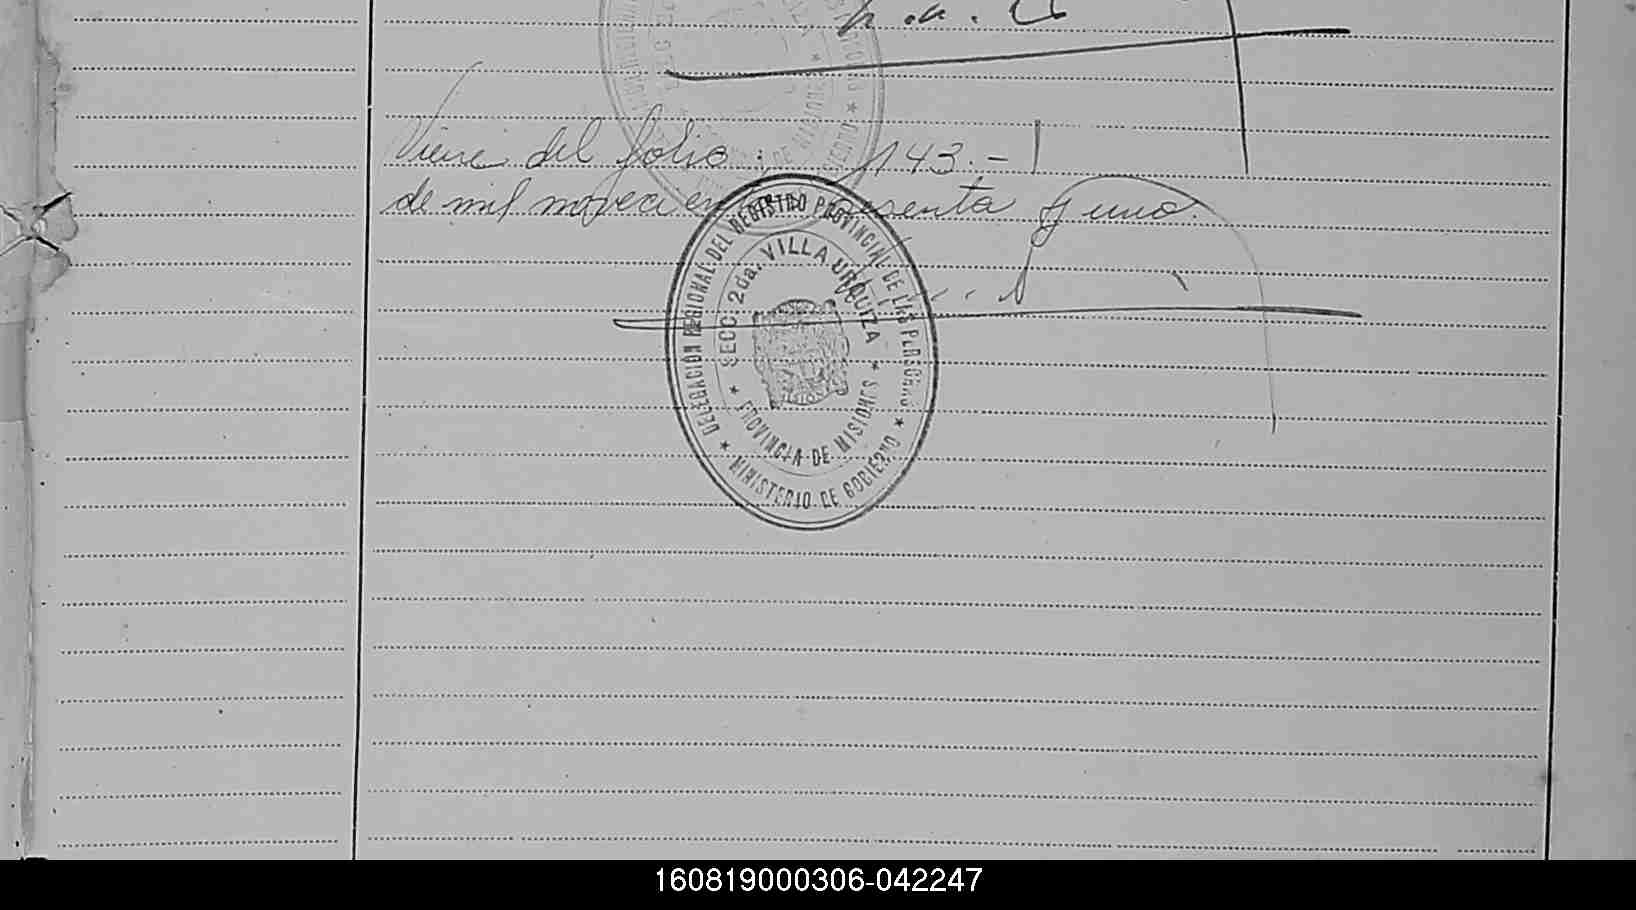 Viene del folio: 143.-
de mil novecien senta y uno.
DELEGACIÓN REGIONAL DEL REGISTRO PROVINCIAL DE LAS PERSONAS
SECC. 2da. VILLA URQUIZA
PROVINCIA DE MISIONES
MINISTERIO DE GOBIERNO
160819000306-042247